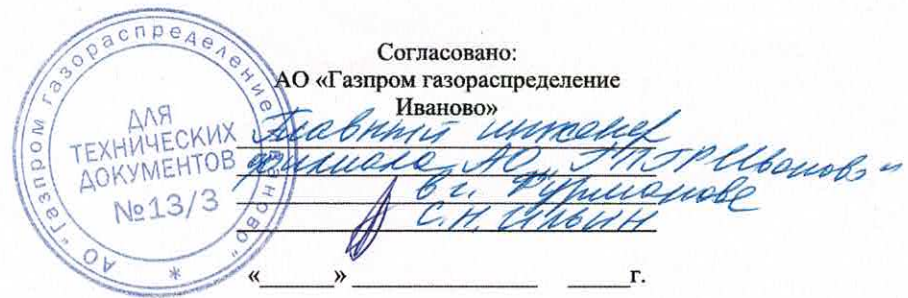 Согласовано:
АО «Газпром газораспределение
Иваново»
Главный инженер
филиала АО "ГПГР Иваново"
в г. Фурманове
С.Н. Ильин
« » г.
АО "Газпром газораспределение Иваново"
*
ДЛЯ
ТЕХНИЧЕСКИХ
ДОКУМЕНТОВ
№13/3